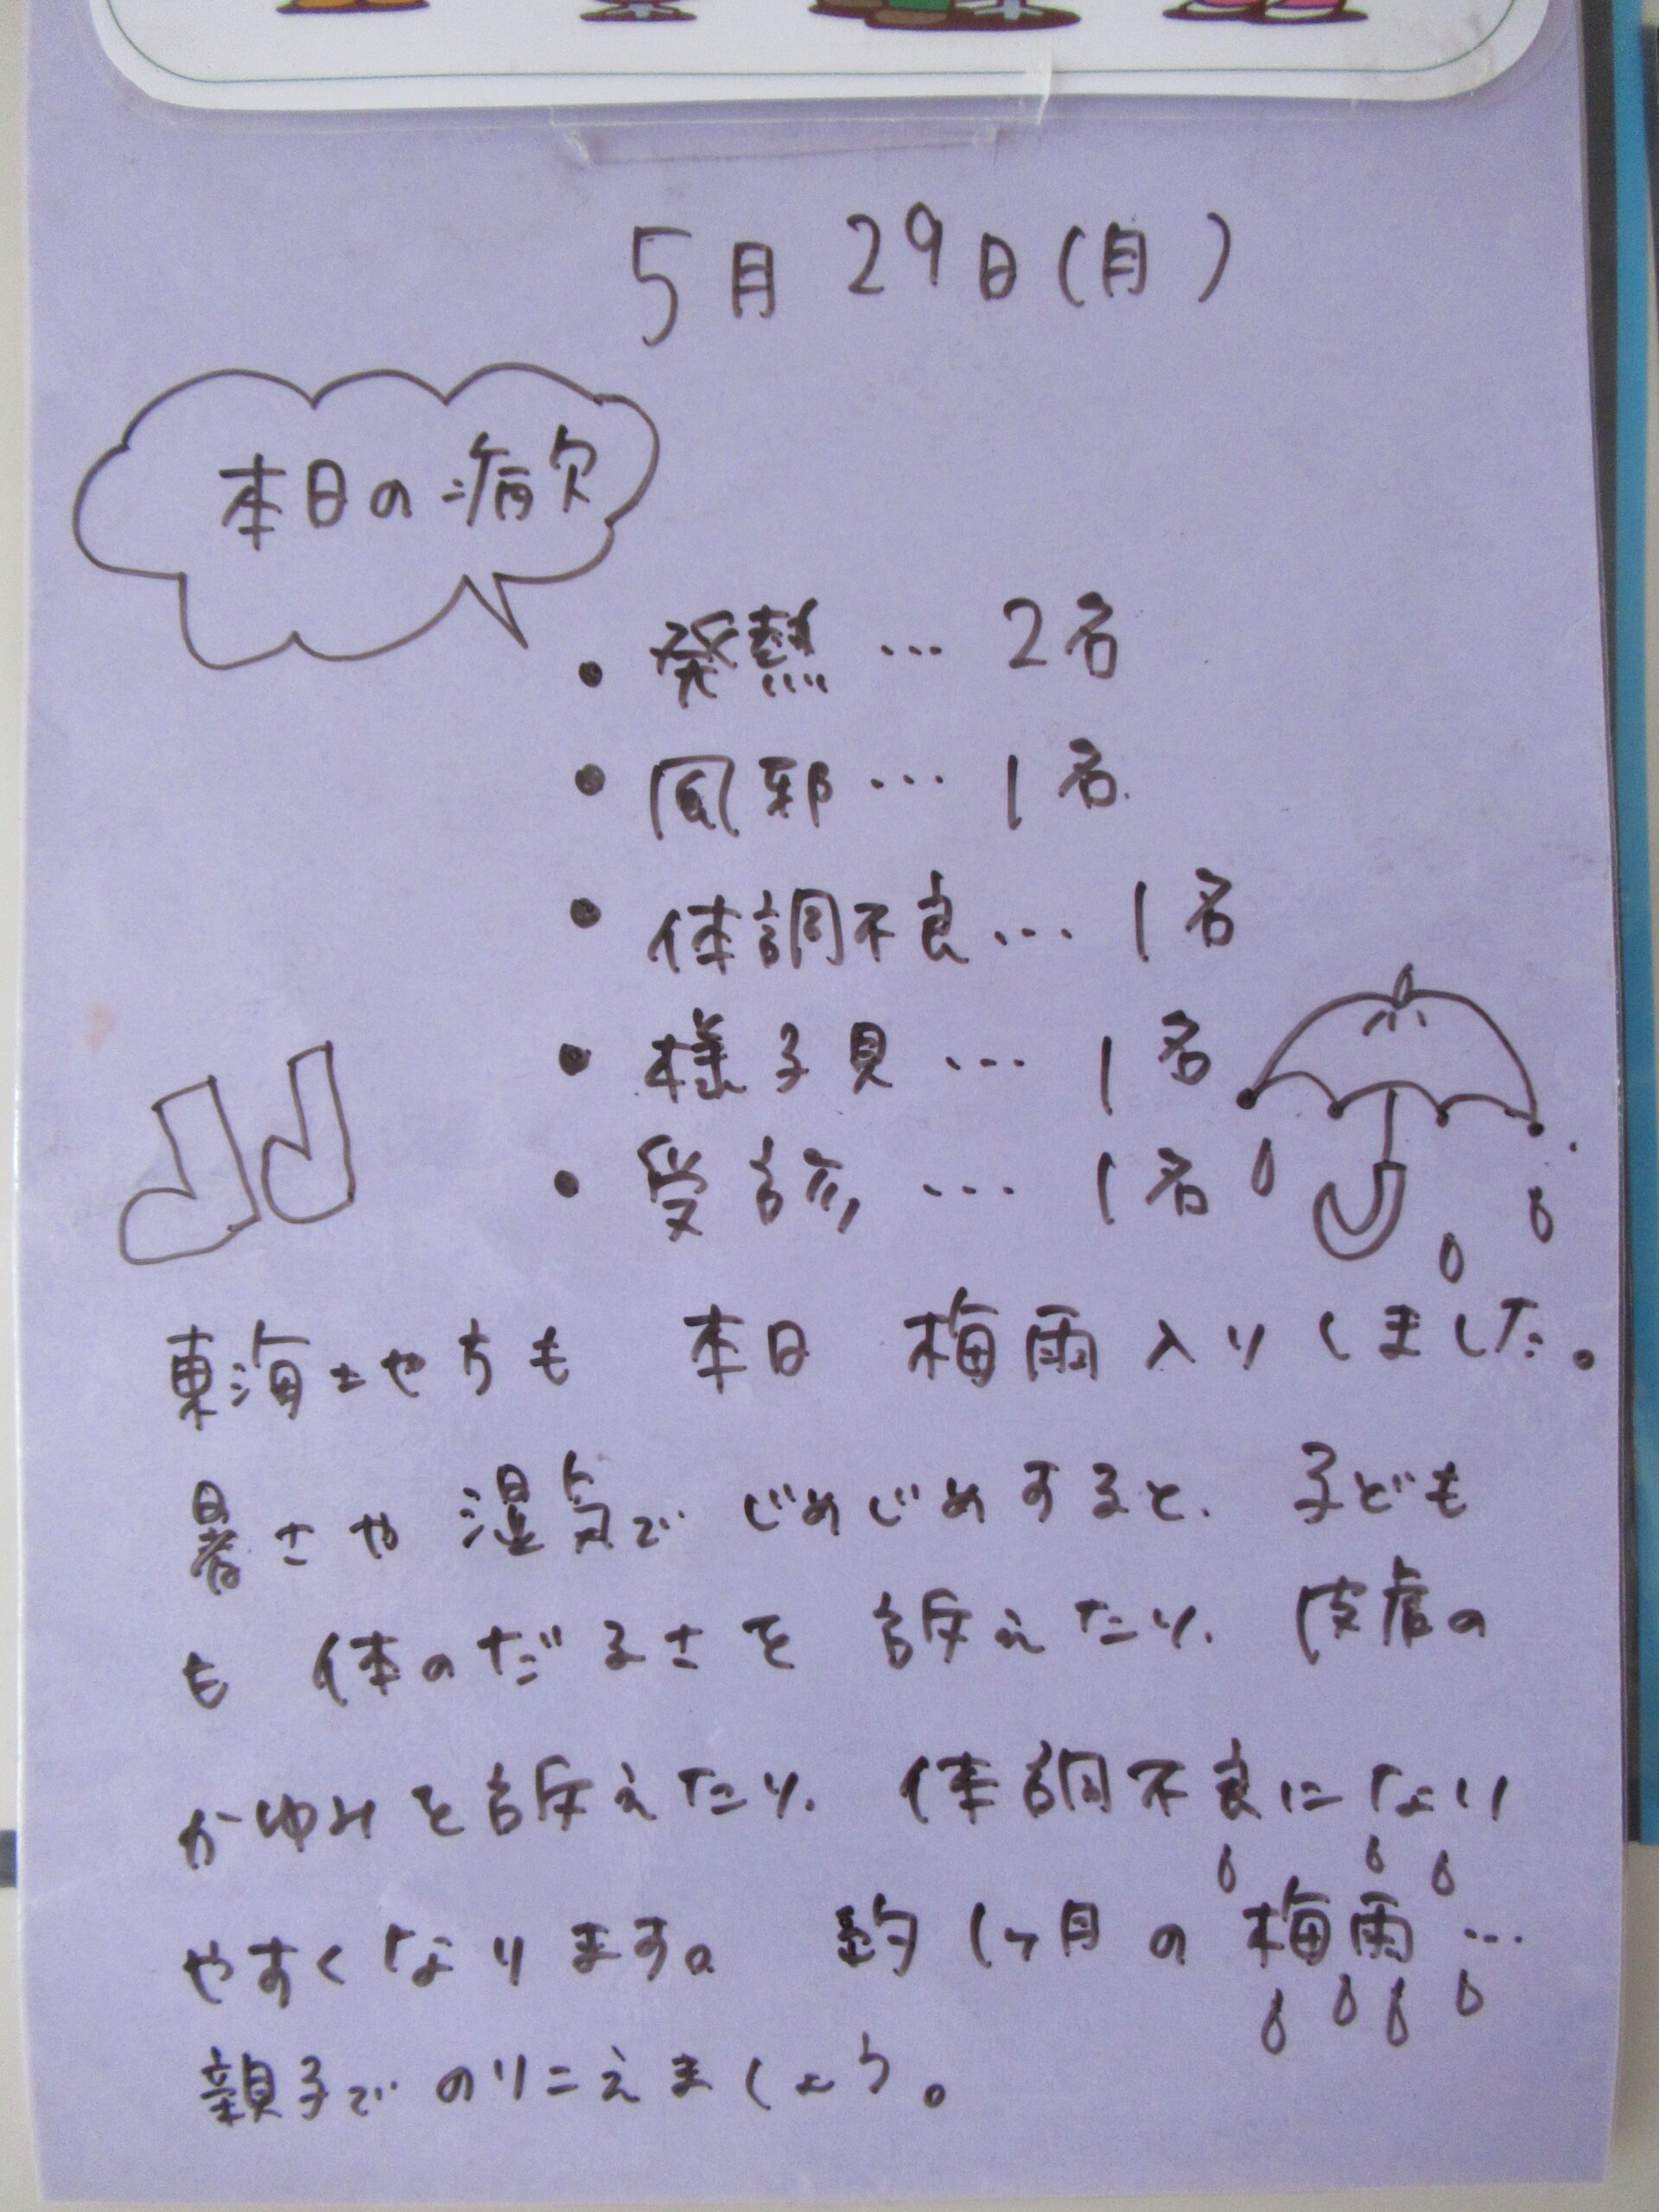 5月29日(月)
本日の病欠
・発熱…2名
・風邪…1名
・体調不良…1名
・様子見…1名
・受診…1名
東海地方も 本日 梅雨入りしました。
暑さや湿気で じめじめすると、子ども
も 体のだるさを 訴えたり、皮膚の
かゆみを訴えたり、体調不良になり
やすくなります。 約1ヶ月の梅雨…
親子でのりこえましょう。